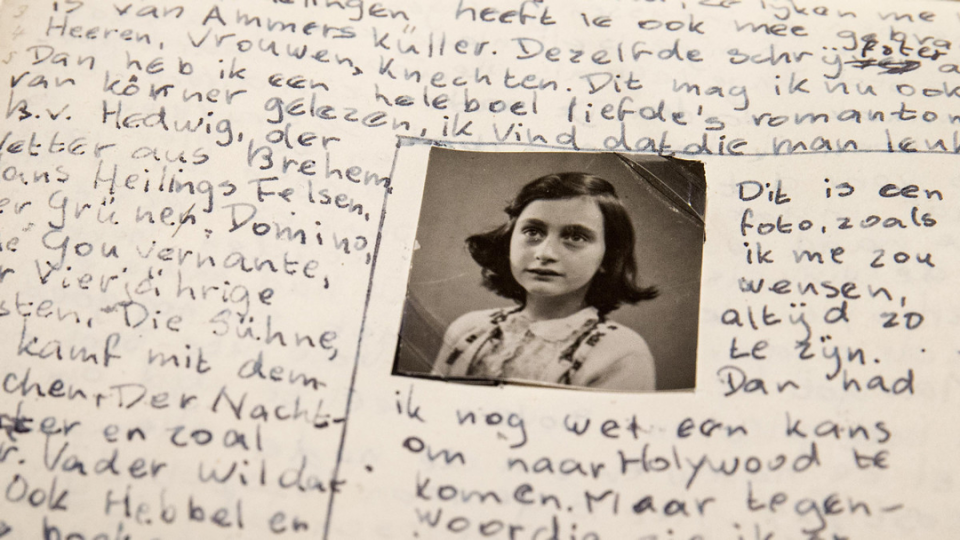 heeft ie ook mee
is van Ammers Küller. Dezelfde schrÿfster
Heeren, Vrouwen, Knechten. Dit mag ik nu ook
Dan heb ik een heleboel liefde's
van körner gelezen, ik vind dat die man
B.v. Hedwig, der
Vetter aus Brehem,
ans Heilings Felsen,
er Grünen, Domino,
Gouvernante,
Vierjährige
sten, Die Sühne,
kamf mit dem
chen, Der Nacht-
en zoal
r. Vader wil dat
Ook Hebbel en
Dit is een
foto, zoals
ik me zou
wensen,
altÿd zo
te zÿn.
Dan had
ik nog wel een kans
om naar Holywood te
komen. Maar tegen-
woordig